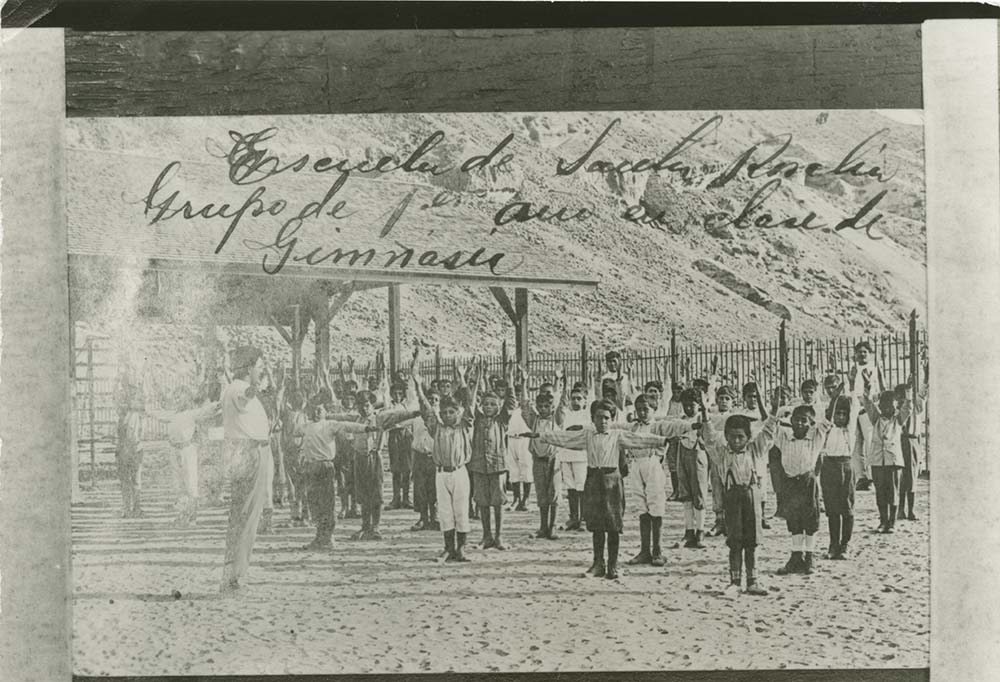 Escuela de Santa Rosalia
Grupo de 1er año en clase de
Gimnasia